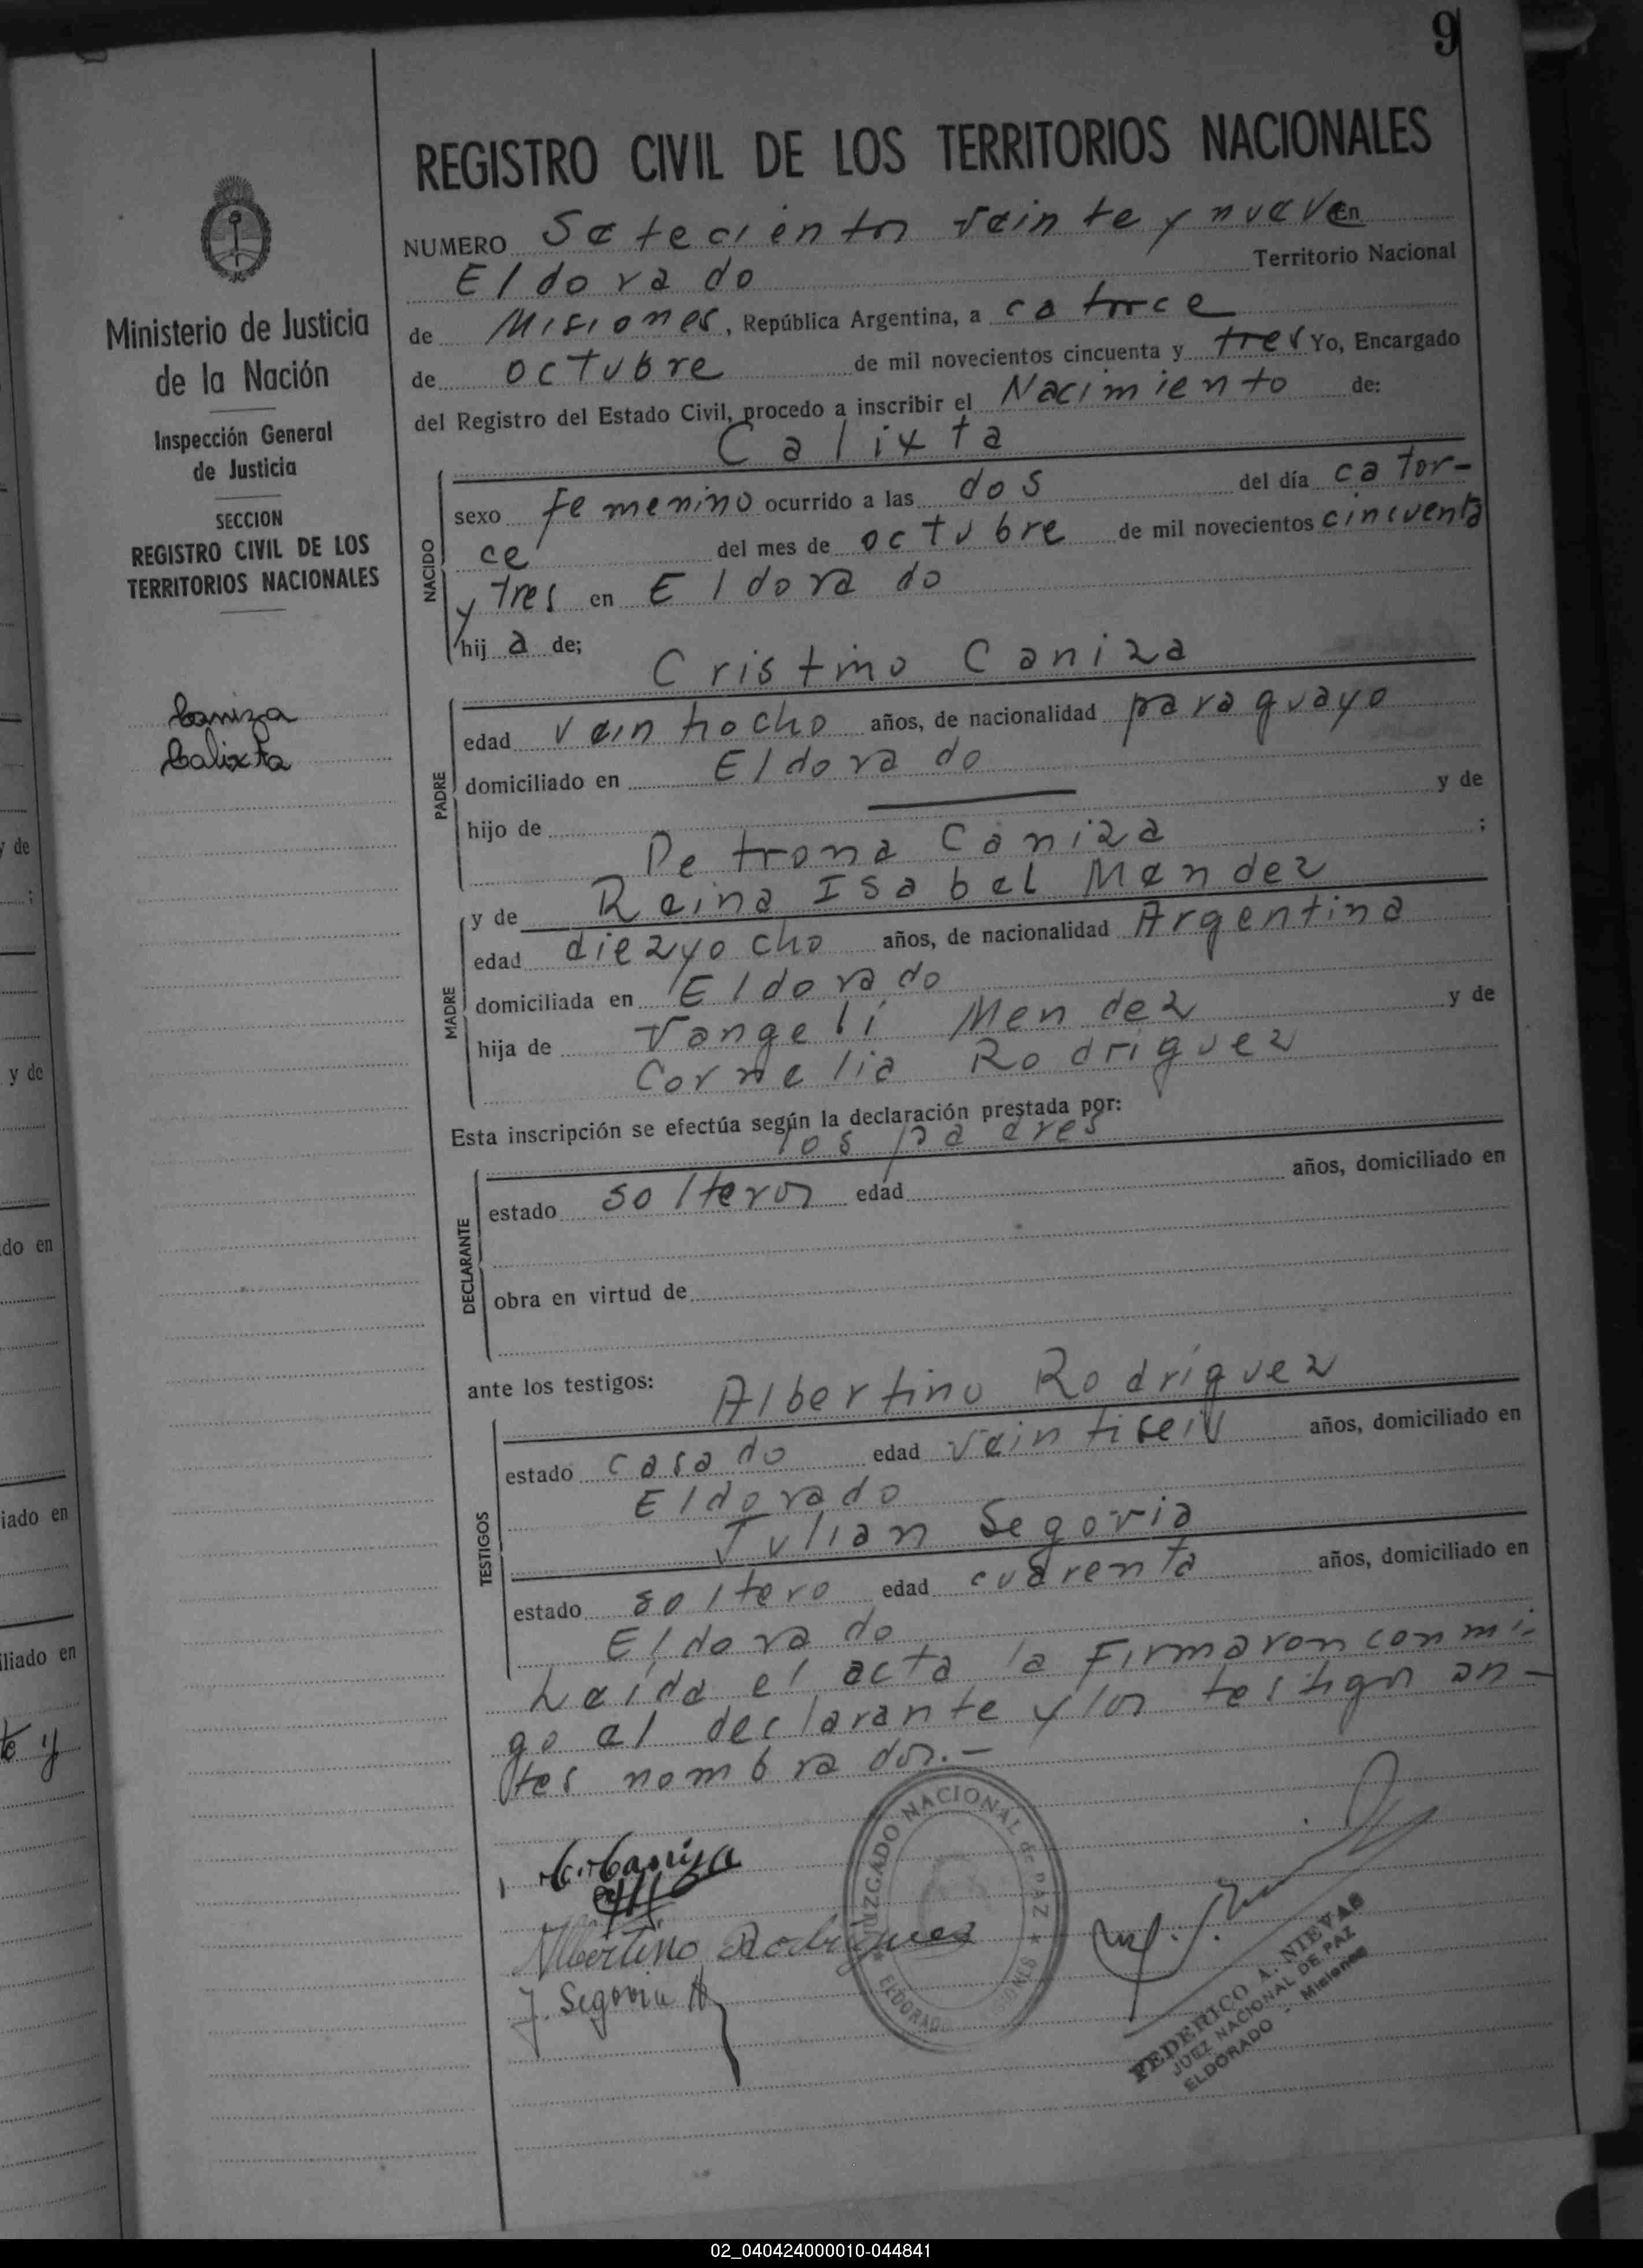 9
REGISTRO CIVIL DE LOS TERRITORIOS NACIONALES
NUMERO Setecientos veinte y nueve En
Eldorado Territorio Nacional
de Misiones, República Argentina, a catorce
de octubre de mil novecientos cincuenta y tres Yo, Encargado
del Registro del Estado Civil, procedo a inscribir el Nacimiento de:
Calixta
NACIDO
sexo femenino ocurrido a las dos del día cator-
ce del mes de octubre de mil novecientos cincuenta
y tres en Eldorado
hij a de;
Cristino Caniza
PADRE
edad veintiocho años, de nacionalidad paraguayo
domiciliado en Eldorado
hijo de y de
Petrona Caniza ;
y de Reina Isabel Mendez
MADRE
edad diezyocho años, de nacionalidad Argentina
domiciliada en Eldorado
hija de Vangeli Mendez y de
Cornelia Rodriguez
Esta inscripción se efectúa según la declaración prestada por:
los padres
DECLARANTE
estado solteros edad años, domiciliado en
obra en virtud de
ante los testigos: Albertino Rodriguez
TESTIGOS
estado casado edad veintiseis años, domiciliado en
Eldorado
Julian Segovia
estado soltero edad cuarenta años, domiciliado en
Eldorado
Leída el acta la firmaron conmi-
go el declarante y los testigos an-
tes nombrados.-
C. Caniza
Albertino Rodriguez
J. Segovia
JUZGADO NACIONAL de PAZ ★ ELDORADO MISIONES ★
FEDERICO A. NIEVAS
JUEZ NACIONAL DE PAZ
ELDORADO - Misiones
Ministerio de Justicia
de la Nación
Inspección General
de Justicia
SECCION
REGISTRO CIVIL DE LOS
TERRITORIOS NACIONALES
Caniza
Calixta
y de
;
y de
do en
iado en
iliado en
te y
02_040424000010-044841